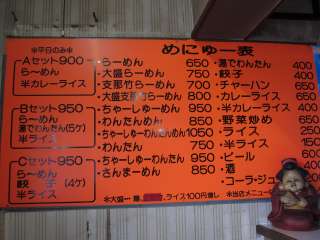 めにゅー表
※平日のみ※
Aセット900
らーめん
半カレーライス
Bセット950
らーめん
湯でわんたん(5ケ)
半ライス
Cセット950
らーめん
餃子(4ケ)
半ライス
らーめん 650
大盛らーめん 750
支那竹らーめん 700
大盛支那竹らーめん 800
ちゃーしゅーめん 950
わんたんめん 850
ちゃーしゅーわんたんめん 1050
わんたん 750
ちゃーしゅーわんたん 950
さんまーめん 850
湯でわんたん 400
餃子 400
チャーハン
カレーライス
半カレーライス
野菜炒め 650
ライス 250
半ライス
ビール 600
酒
コーラ・ジュ
※大盛
ライス100円増し
※当店メニュー